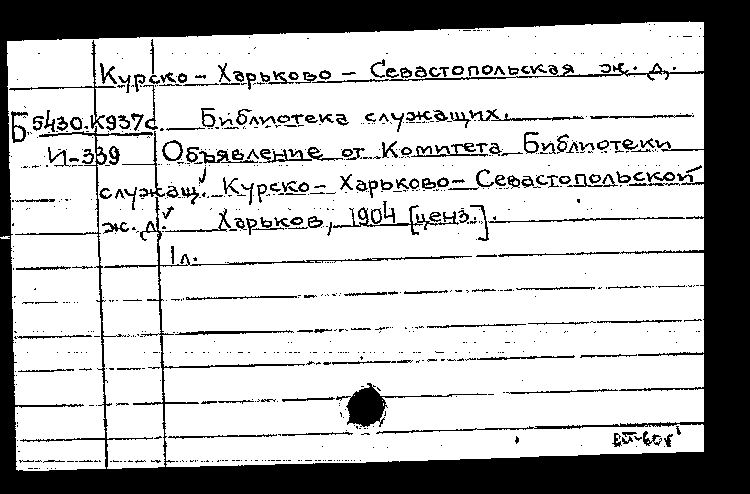 Курско – Харьково – Севастопольская ж. д.
Б 5430.К937с. Библиотека служащих.
И-339 Объявление от Комитета Библиотеки
служащ. Курско – Харьково – Севастопольской
ж. д. Харьков, 1904 [ценз.].
1 л.